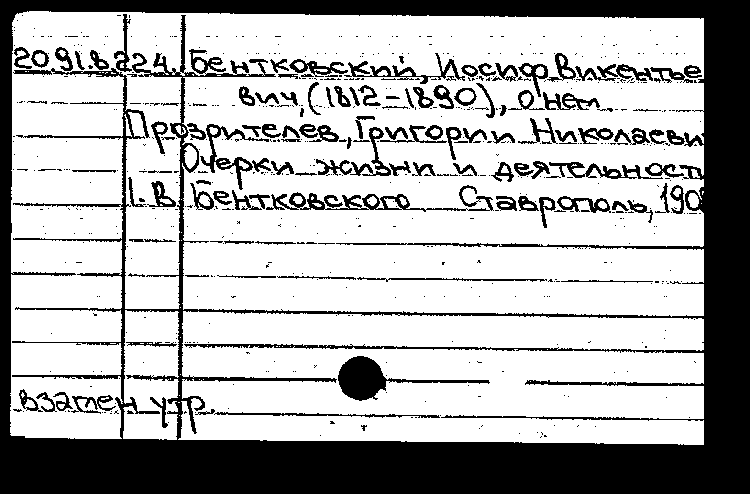 20.91.8.224. Бентковский, Иосиф Викентье
вич, (1812-1890), о нем.
Прозрителев, Григории Николаеви
Очерки жизни и деятельност
I. В. Бентковского Ставрополь, 190
взамен утр.